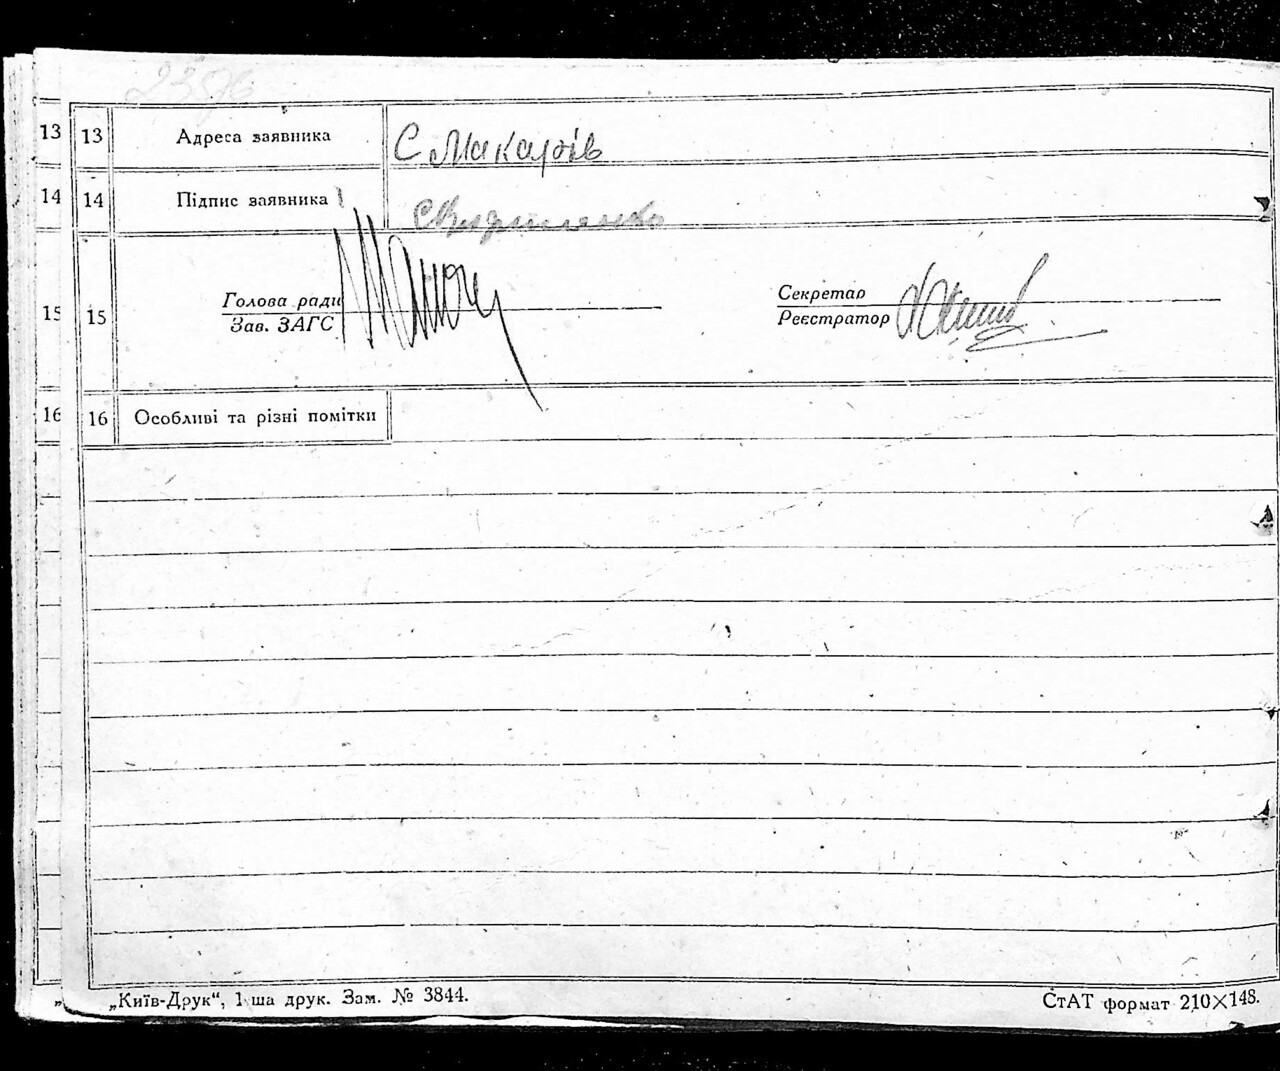 13 13 Адреса заявника С Макарів
14 14 Підпис заявника
Голова ради Секретар
15 15 Зав. ЗАГС Реєстратор
16 16 Особливі та різні помітки
„Київ-Друк“, 1 ша друк. Зам. № 3844. СтАТ формат 210×148.